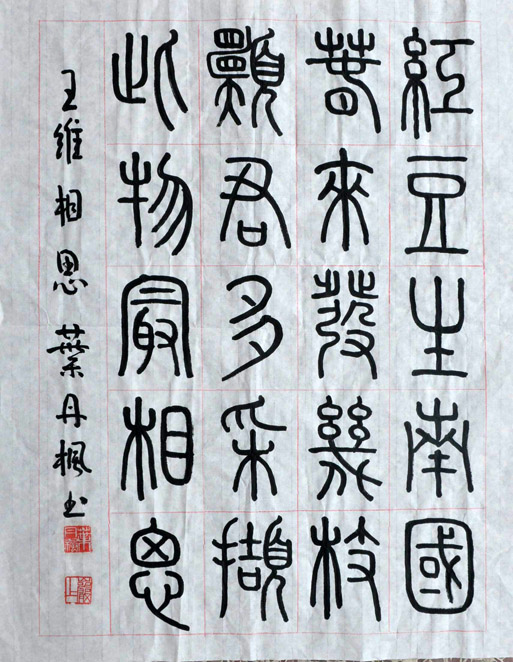 紅豆生南國
春來發幾枝
願君多采擷
此物最相思
王維相思 葉丹楓书